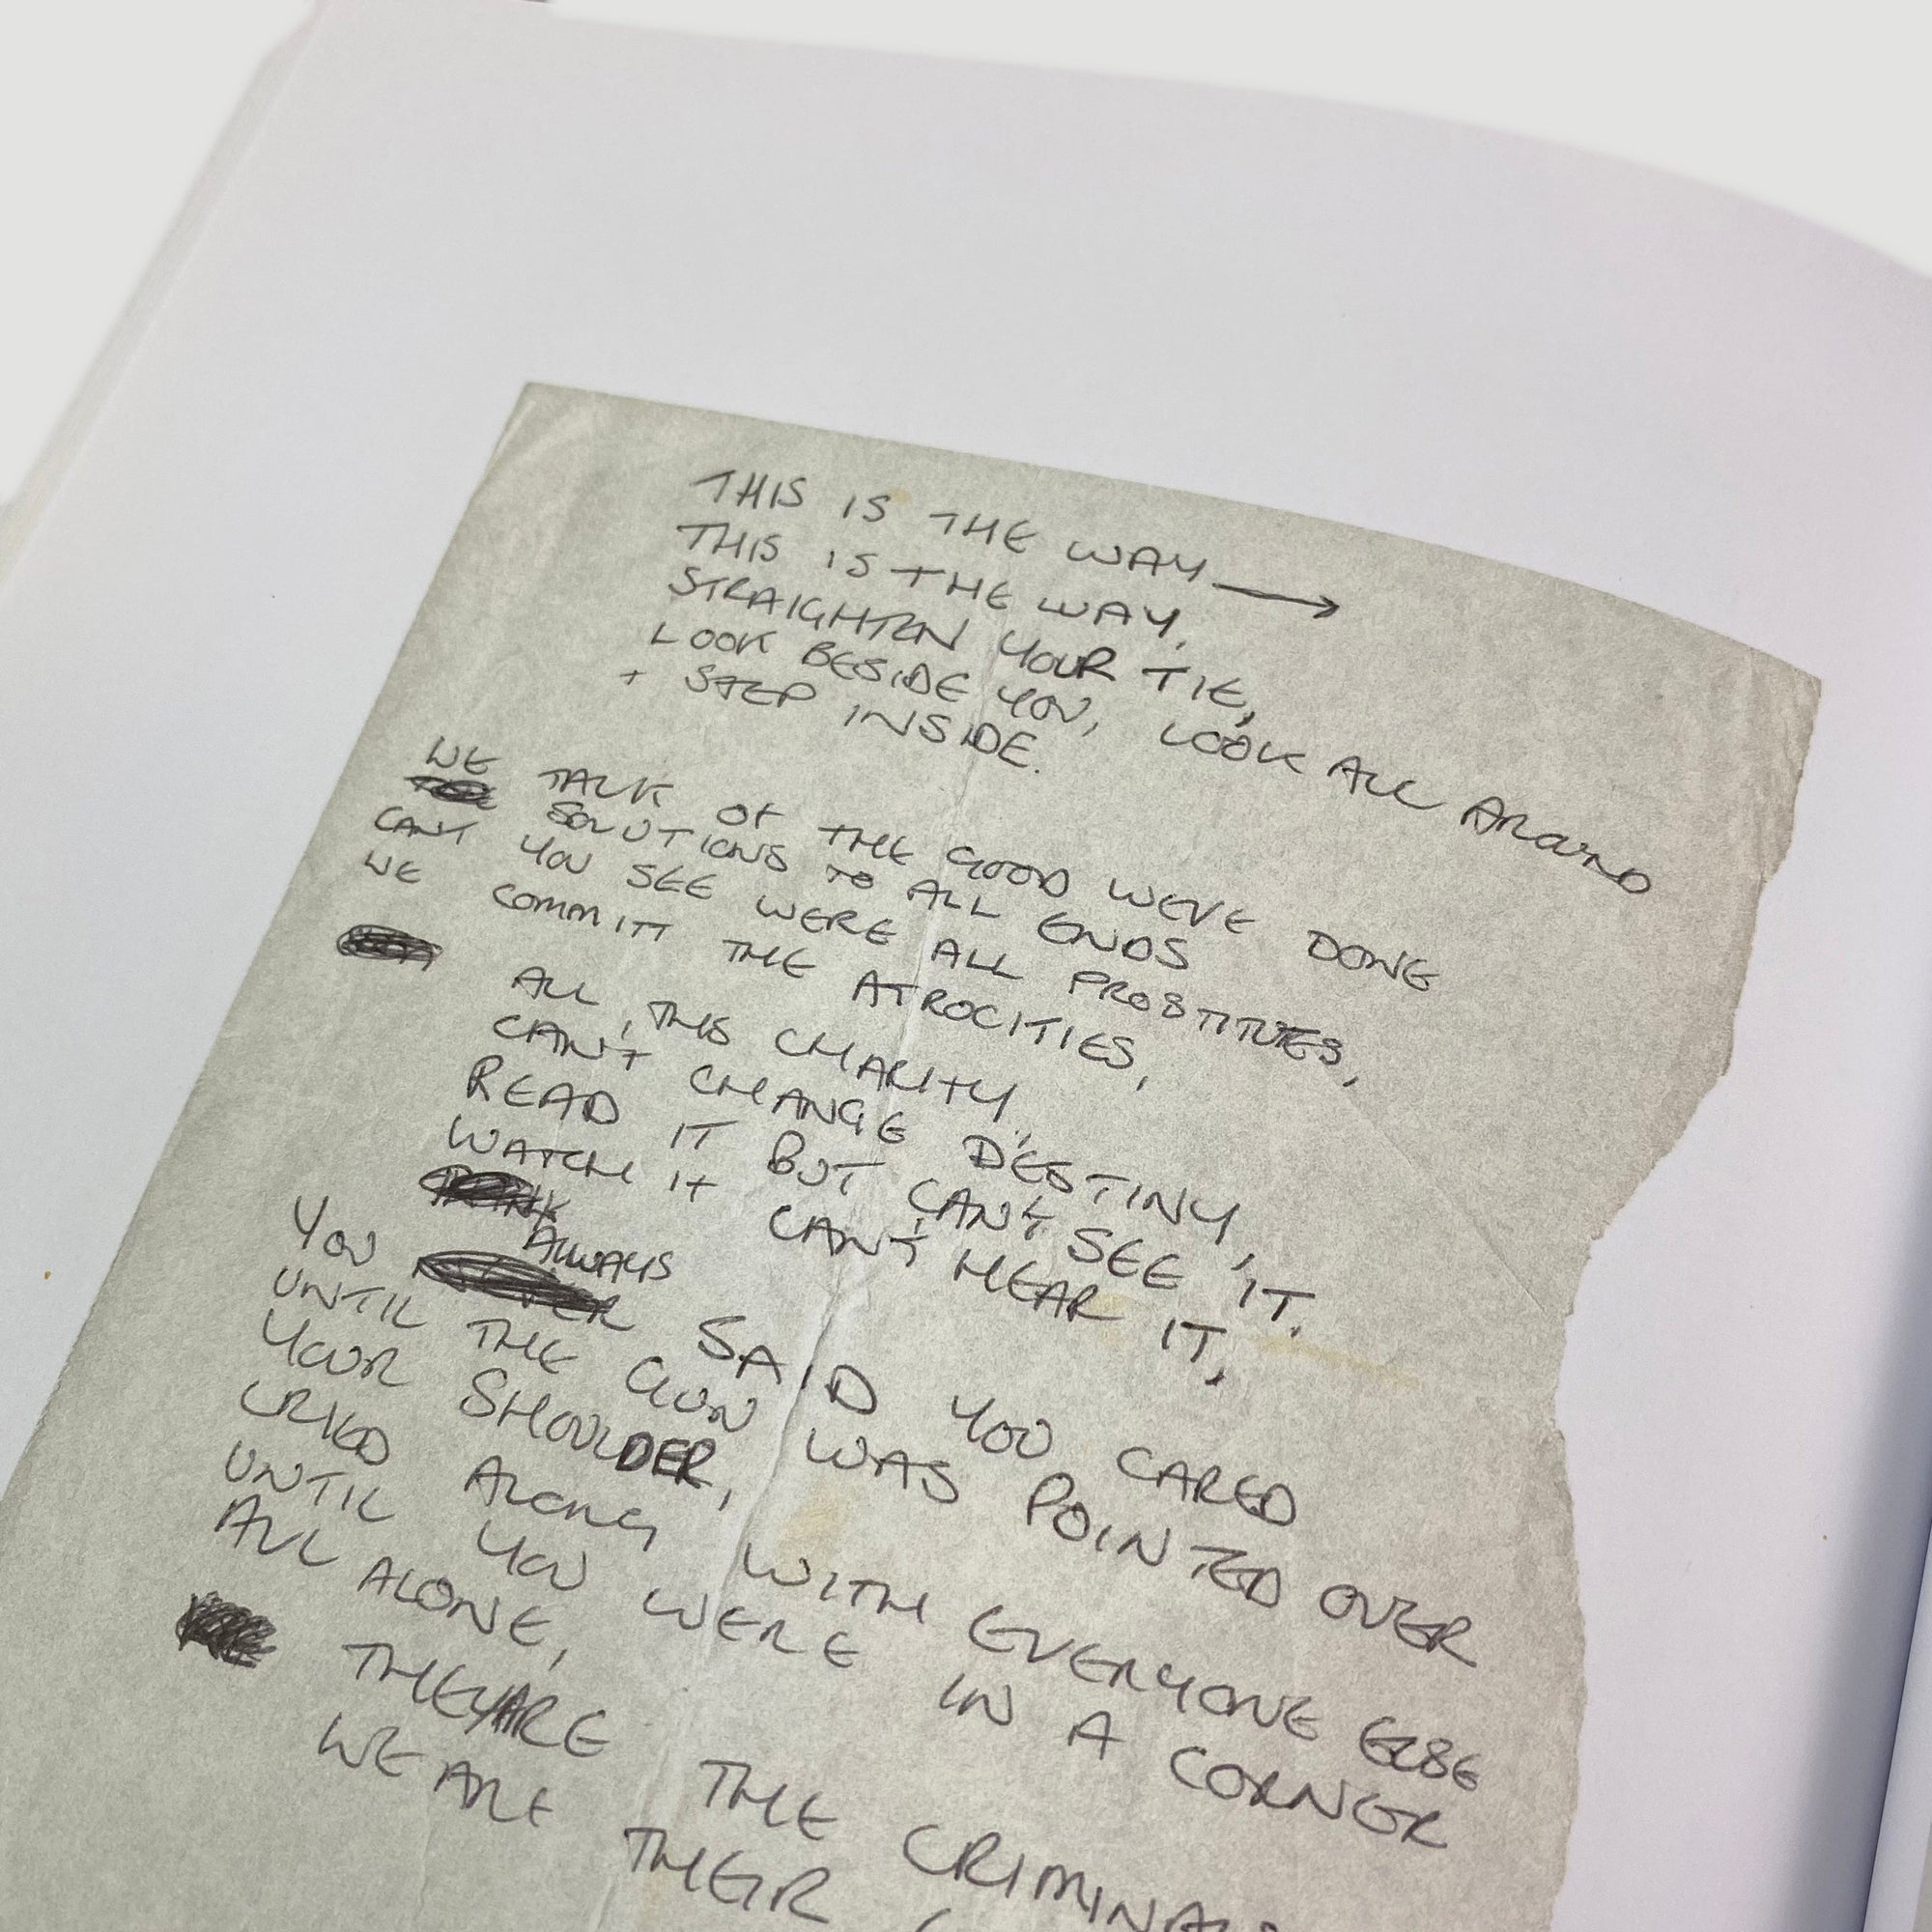 THIS IS THE WAY →
THIS IS THE WAY,
STRAIGHTEN YOUR TIE,
LOOK BESIDE YOU, LOOK ALL AROUND
+ STEP INSIDE.
WE TALK OF THE GOOD WEVE DONE
SOLUTIONS TO ALL ENDS
CANT YOU SEE WERE ALL PROSTITUTES,
WE COMMITT THE ATROCITIES,
ALL THIS CHARITY,
CAN'T CHANGE DESTINY,
READ IT BUT CAN'T SEE IT.
WATCH IT CAN'T HEAR IT,
ALWAYS
YOU SAID YOU CARED
UNTIL THE GUN WAS POINTED OVER
YOUR SHOULDER,
CRIED ALONG WITH EVERYONE ELSE
UNTIL YOU WERE IN A CORNER
ALL ALONE,
THEYARE THE
WE ARE THEIR